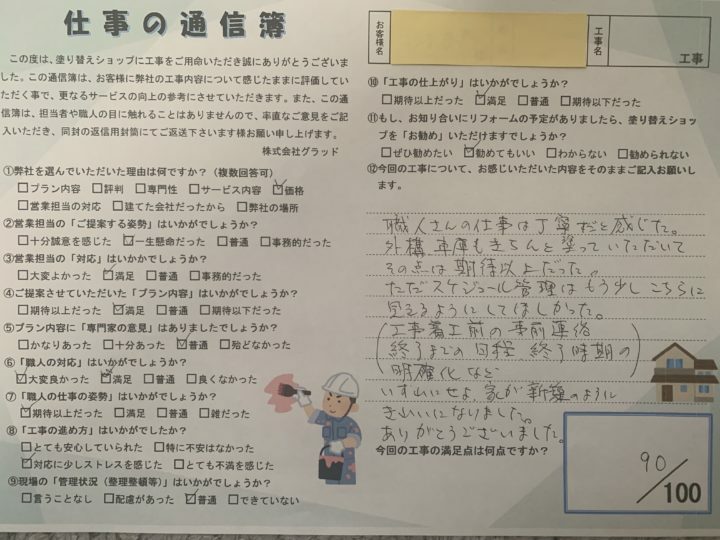 仕事の通信簿
この度は、塗り替えショップに工事をご用命いただき誠にありがとうございま
した。この通信簿は、お客様に弊社の工事内容について感じたままに評価してい
ただく事で、更なるサービスの向上の参考にさせていただきます。また、この通
信簿は、担当者や職人の目に触れることはありませんので、率直なご意見をご記
入いただき、同封の返信用封筒にてご返送下さいます様お願い申し上げます。
株式会社グラッド
①弊社を選んでいただいた理由は何ですか?(複数回答可)
□プラン内容 □評判 □専門性 □サービス内容 ☑価格
□営業担当の対応 □建てた会社だったから □弊社の場所
②営業担当の「ご提案する姿勢」はいかがでしょうか?
□十分誠意を感じた ☑一生懸命だった □普通 □事務的だった
③営業担当の「対応」はいかがでしょうか?
□大変よかった ☑満足 □普通 □事務的だった
④ご提案させていただいた「プラン内容」はいかがでしょうか?
□期待以上だった ☑満足 □普通 □期待以下だった
⑤プラン内容に「専門家の意見」はありましたでしょうか?
□かなりあった □十分あった ☑普通 □殆どなかった
⑥「職人の対応」はいかがでしょうか?
☑大変良かった ☑満足 □普通 □良くなかった
⑦「職人の仕事の姿勢」はいかがでしょうか?
☑期待以上だった □満足 □普通 □雑だった
⑧「工事の進め方」はいかがでしたか?
□とても安心していられた □特に不安はなかった
☑対応に少しストレスを感じた □とても不満を感じた
⑨現場の「管理状況(整理整頓等)」はいかがでしょうか?
□言うことなし □配慮があった ☑普通 □できていない
お客様名
工事名
工事
⑩「工事の仕上がり」はいかがでしょうか?
□期待以上だった ☑満足 □普通 □期待以下だった
⑪もし、お知り合いにリフォームの予定がありましたら、塗り替えショッ
プを「お勧め」いただけますでしょうか?
□ぜひ勧めたい ☑勧めてもいい □わからない □勧められない
⑫今回の工事について、お感じいただいた内容をそのままご記入お願いし
ます。
職人さんの仕事は丁寧だと感じた。
外構 車庫もきちんと塗っていただいて
その点は期待以上だった。
ただスケジュール管理はもう少しこちらに
見えるようにしてほしかった。
(工事着工前の事前連絡
終了までの日程 終了時期の
明確化など)
いずれにせよ、家が新築のように
きれいになりました。
ありがとうございました。
今回の工事の満足点は何点ですか?
90/100